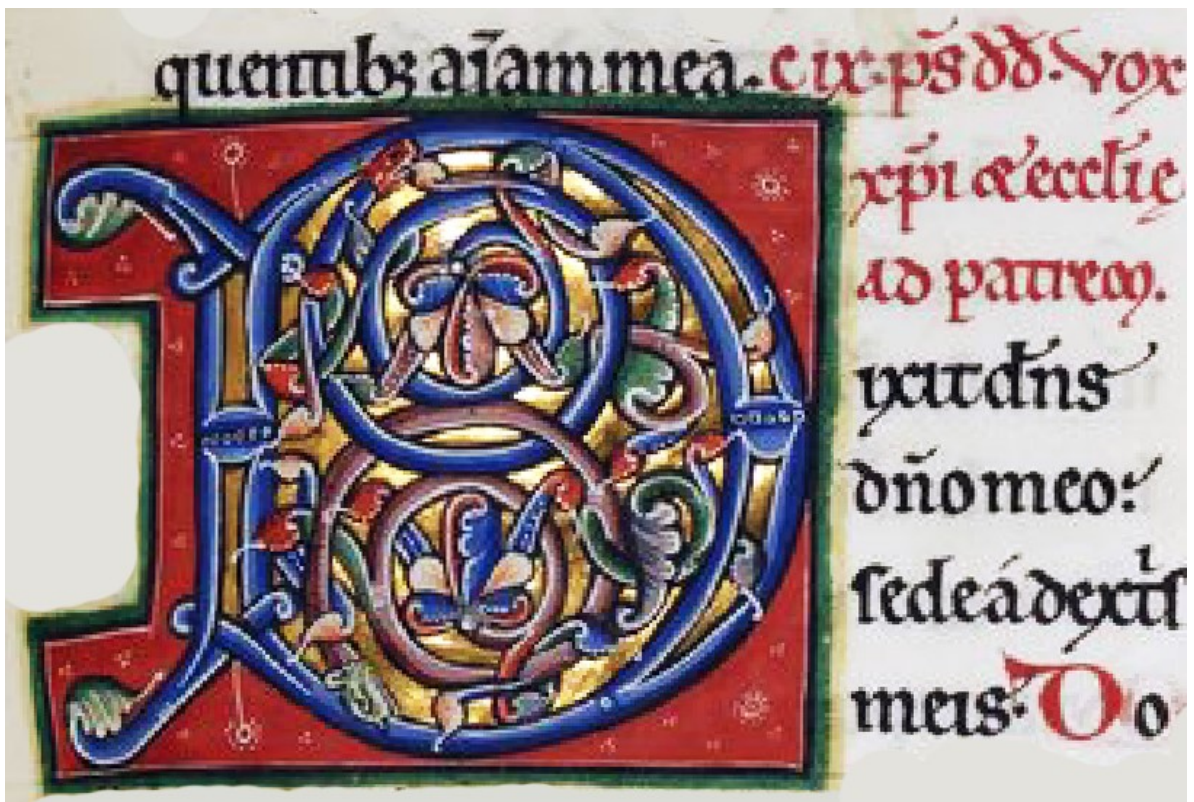 quentib; aīam mea. C ix. p̄s d̄d. Vox
xp̄i & eccl̄ie
ad patrem.
D ixit dn̄s
dn̄o meo:
sede á dext̄s
meis. Do